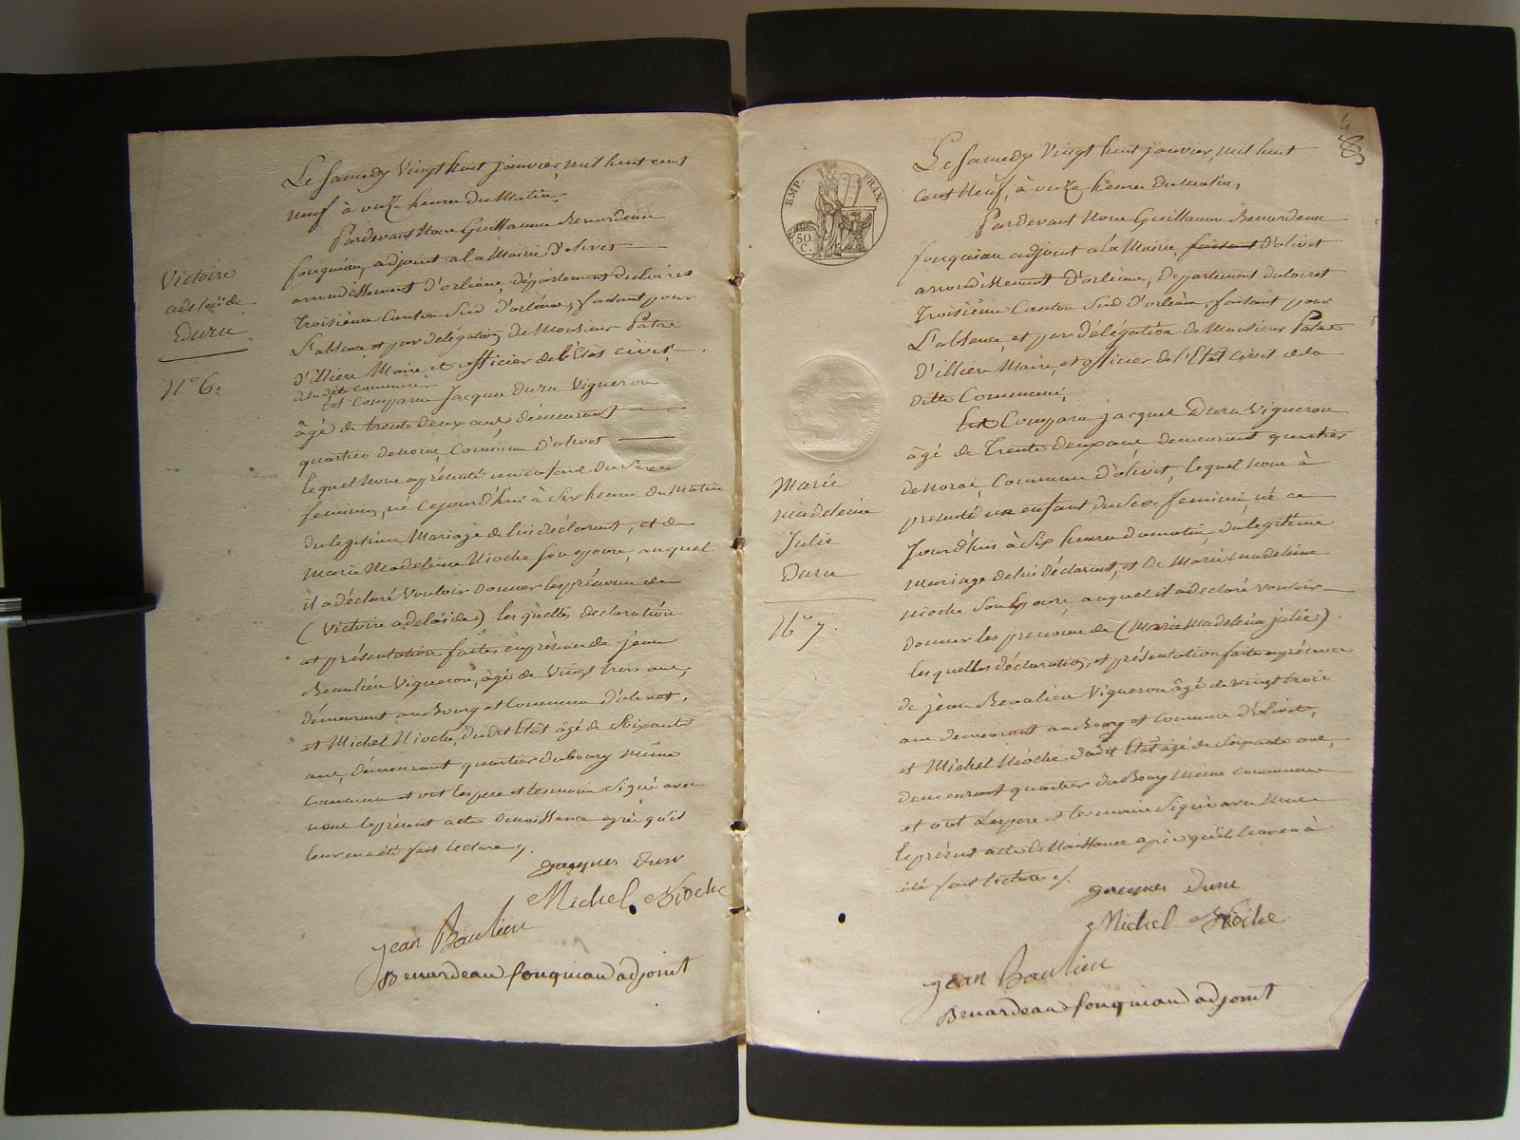 Victoire
adélaïde
Duru
N.º 6.
Le Samedy Vingt huit janvier, mil huit cent
neuf à onze heures du Matin.
Pardevant Nous Guillaume Benardeau
fouqueau, adjoint a la Mairie d'olivet
arrondissement d'orléans, département du Loiret
Troisième Canton Sud d'orléans, faisant pour
L'absence, et par délégation de Monsieur Patas
d'illiers Maire, et officier de l'Etat civil
de la dite commune.
Est Comparu Jacques Duru Vigneron
âgé de trente deux ans demeurant
quartier de , Commune d'olivet
lequel Nous a présenté un enfant du Sexe
feminin, né cejourd'hui à Six heures du Matin
du legitime Mariage de lui déclarant, et de
Marie Madeleine Nioche son épouse, auquel
il a déclaré Vouloir donner les prénoms de
(Victoire adélaïde) les quelles déclaration
et présentation faites en présence de jean
Beaulieu Vigneron, âgé de Vingt trois ans,
demeurant au Bourg et Commune d'olivet,
et Michel Nioche, dudit Etat âgé de Soixante
ans, demeurant quartier du bourg même
commune et ont les pere et temoins Signé avec
nous le présent acte de naissance après qu'il
leur en a été fait lecture.
jacques Duru
Michel Nioche
jean Baulieu
Benardeau fouquiau adjoint
EMP. FRAN.
50
C.
Marie
madeleine
Julie
Duru
N.º 7.
Le Samedy Vingt huit janvier, mil huit
cent Neuf, à onze heures du Matin,
Pardevant Nous Guillaume Benardeau
fouquiau adjoint a la Mairie, faisant d'olivet
arrondissement d'orléans, Departement du Loiret
Troisième Canton Sud d'orléans, faisant pour
L'absence, et par délégation de Monsieur Patas
d'illiers Maire, et officier de l'Etat Civil de la
ditte Commune,
Est Comparu jacques Duru Vigneron
âgé de Trente deux ans demeurant quartier
de , Commune d'olivet, lequel nous à
presenté un enfant du Sexe feminin, né ce
jourd'hui à Six heures du matin, du legitime
mariage de lui déclarant, et de Marie madeleine
nioche Son Epouse, auquel il a declaré vouloir
donner les prenoms de (Marie Madeleine julie)
les quelles déclaration, et présentation faites en présence
de jean Beaulieu Vigneron âgé de vingt trois
ans demeurant au Bourg et commune d'olivet,
et Michel Nioche, dudit Etat âgé de Soixante ans,
demeurant quartier du Bourg même commune
et ont Les pere et temoins Signé avec Nous
le présent acte de Naissance après qu'il leur en à
été fait lecture.
jacques Duru
Michel Nioche
jean Baulieu
Benardeau fouquiau adjoint